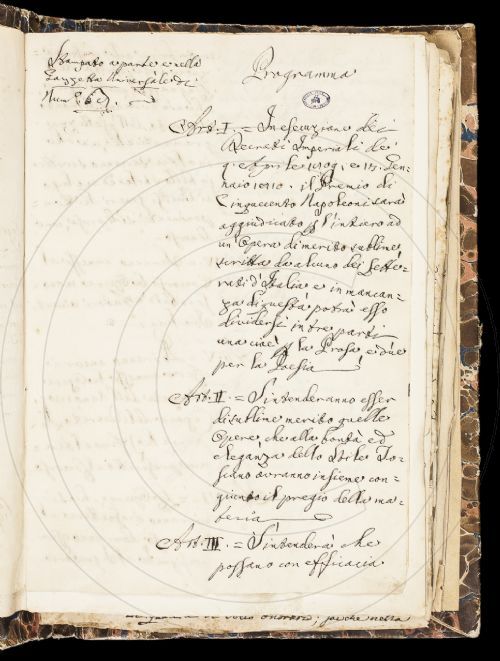 Stampato a parte e nella
Gazzetta Universale di
Num.
Programma
Art. I. = In esecuzione dei
Decreti Imperiali dei
9. Aprile 1809, e 15. Gen=
naio 1810. il Premio di
Cinquecento Napoleoni sarà
aggiudicato p l'intiero ad
un'Opera di merito sublime
scritta da alcuno dei Lette=
rati d'Italia e in mancan=
za di questa potrà esso
dividersi in tre parti
una cioè p la Prosa e due
per la Poesia
Art. II. = S'intenderanno esser
di sublime merito quelle
Opere, che alla bontà ed
eleganza dello Stile To=
scano avranno insieme con=
giunto il pregio della ma=
teria
Art. III. = S'intenderà che
possano con efficacia
onorare; poichè nella